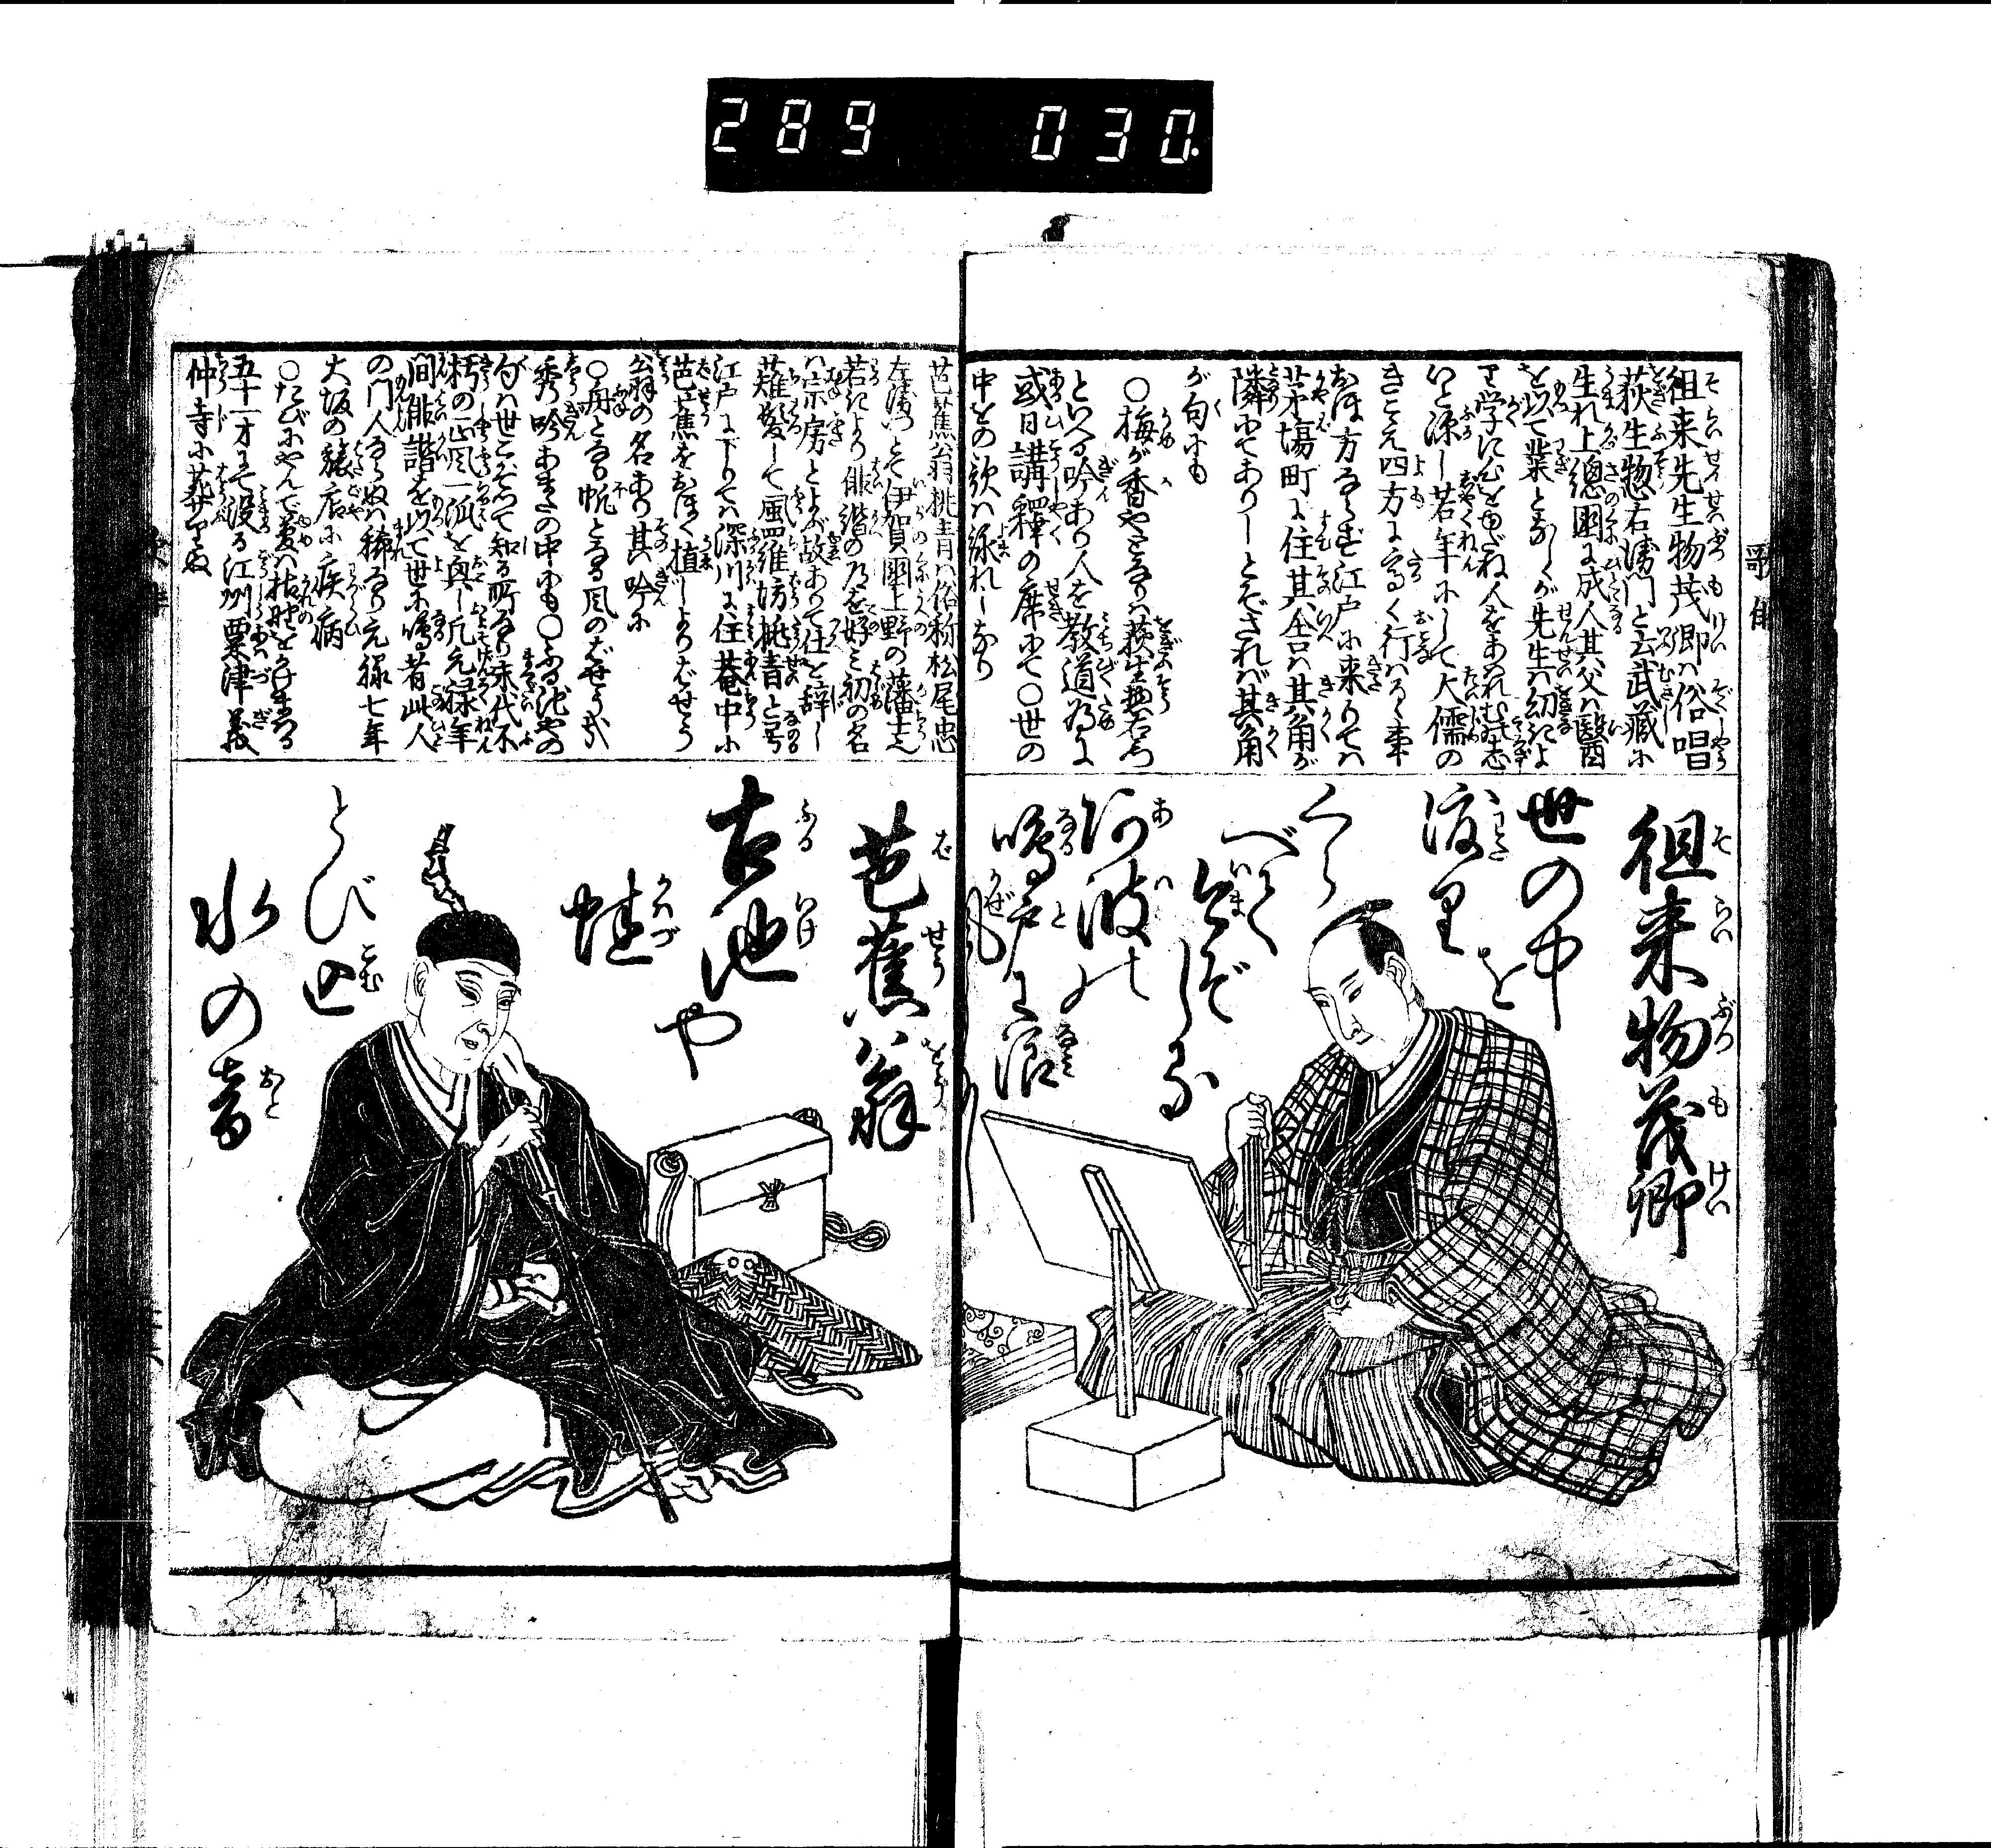 289 030
祖来先生物茂卿ハ俗唱
荻生惣右衛門と云武蔵に
生れ上總国に成人其父ハ醫
を以て業となしゝが先生ハ幼きよ
り学に心をゆだね人をあわれむ志
いと深し若年にして大儒の
きこえ四方に高く行ハるゝ事
おほ方ならず江戸に来りてハ
茅場町に住其舎ハ其角が
隣にてありしとぞされバ其角
が句にも
○梅が香やとなりハ荻生惣右衛門
といへる吟あり人を教道為に
或日講釋の席にて○世の
中をの歌ハ詠れしなり
祖来物茂卿
世の中を
渡里
くら
べて
今ぞしる
阿波の
鳴戸に浪
風
芭蕉翁桃青ハ俗称松尾忠
左衛門とて伊賀国上野の藩士也
若きより俳諧の道を好ミ初の名
ハ宗房とよぶ故ありて仕を辞し
薙髪して風羅坊桃青と号
江戸に下りてハ深川に住菴中に
芭蕉をおほく植しよりばせを
翁の名あり其吟に
○舟となり帆となる風のばせを哉
秀吟あまたの中にも○ふる池やの
句ハ世こぞつて知る所なり末代不
朽の正風一派を興し凡元禄年
間俳諧を以て世に鳴者此人
の門人ならぬハ稀なり元禄七年
大坂の旅店に疾病
○たびにやんで夢ハ枯野をかけまハる
五十一才にて没る江州粟津義
仲寺に葬りぬ
芭蕉翁
古池や
蛙
とび込
水の音